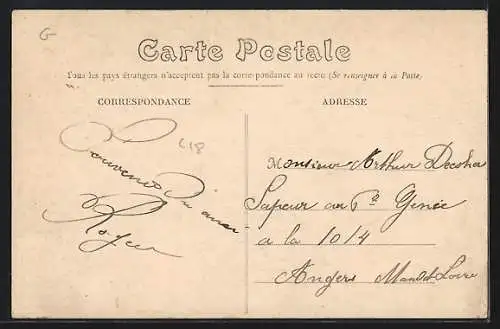 G
Carte Postale
Tous les pays étrangers n'acceptent pas la correspondance au recto (Se renseigner à la Poste)
CORRESPONDANCE
ADRESSE
C18
Souvenir d'un ami
Roger
Monsieur Arthur
Sapeur au 6e Génie
à la 10/4
Angers Maine et Loire